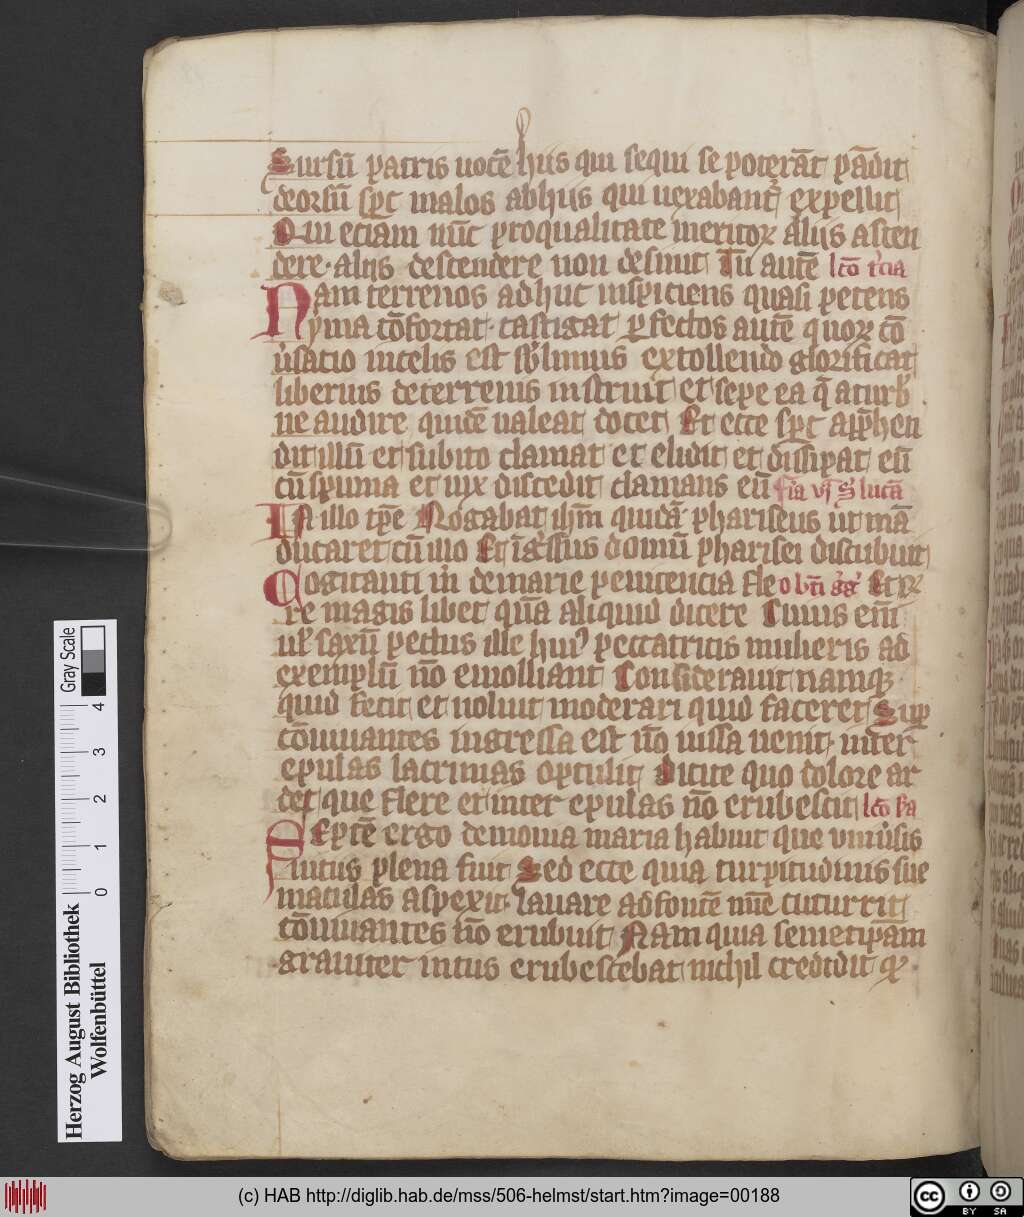 Sursū patris uocē hiis qui sequi se poterāt pādit
deorsū spc malos abhiis qui uexabant expellit
Qui eciam nūc proqualitate meritoꝝ aliis ascen
dere· aliis descendere non desinit Tu autē lcō t'cia
Nam terrenos adhuc inspiciens quasi petens
yma cōfortat· castigat ꝑfectos autē quoꝝ cō
u'satio incelis est sb'limius extollendo glorificat
liberius deterrenis instruit et sepe ea q̄ aturb'
ne audire quidē ualeat docet Et ecce spc app'hen
dit illū et subito clamat et elidit et dissipat eū
cū spuma et uix discedit dilanians eū fr'a vj S' lucā
In illo tꝑe Rogabat ihm̄ quidā phariseus ut mā
ducaret cū illo Et īg'ssus domū pharisei discubuit
Cogitanti m̄ demarie penitencia fle o bt̄i g'g' Et ꝑꝝ
re magis libet quā aliquid dicere Cuius em̄
ul' saxū pectus ille hui' peccatricis mulieris ad
exemplū nō emolliant Considerauit namqꝫ
quid fecit et noluit moderari quid faceret Suꝑ
cōuiuantes ingressa est nō iussa uenit inter
epulas lacrimas optulit Dicite quo dolore ar
det que flere et inter epulas nō erubescit lcō s'a
Septē ergo demonia maria habuit que vniu'sis
uitiis plena fuit Sed ecce quia turpitudinis sue
maculas aspexit lauare adfontē mīe cucurrit
cōuiuantes nō erubuit Nam quia semetipam
grauiter intus erubescebat nichil credidit qꝫ
Herzog August Bibliothek
Wolfenbüttel
0 1 2 3 4
Gray Scale
(c) HAB http://diglib.hab.de/mss/506-helmst/start.htm?image=00188
cc BY SA